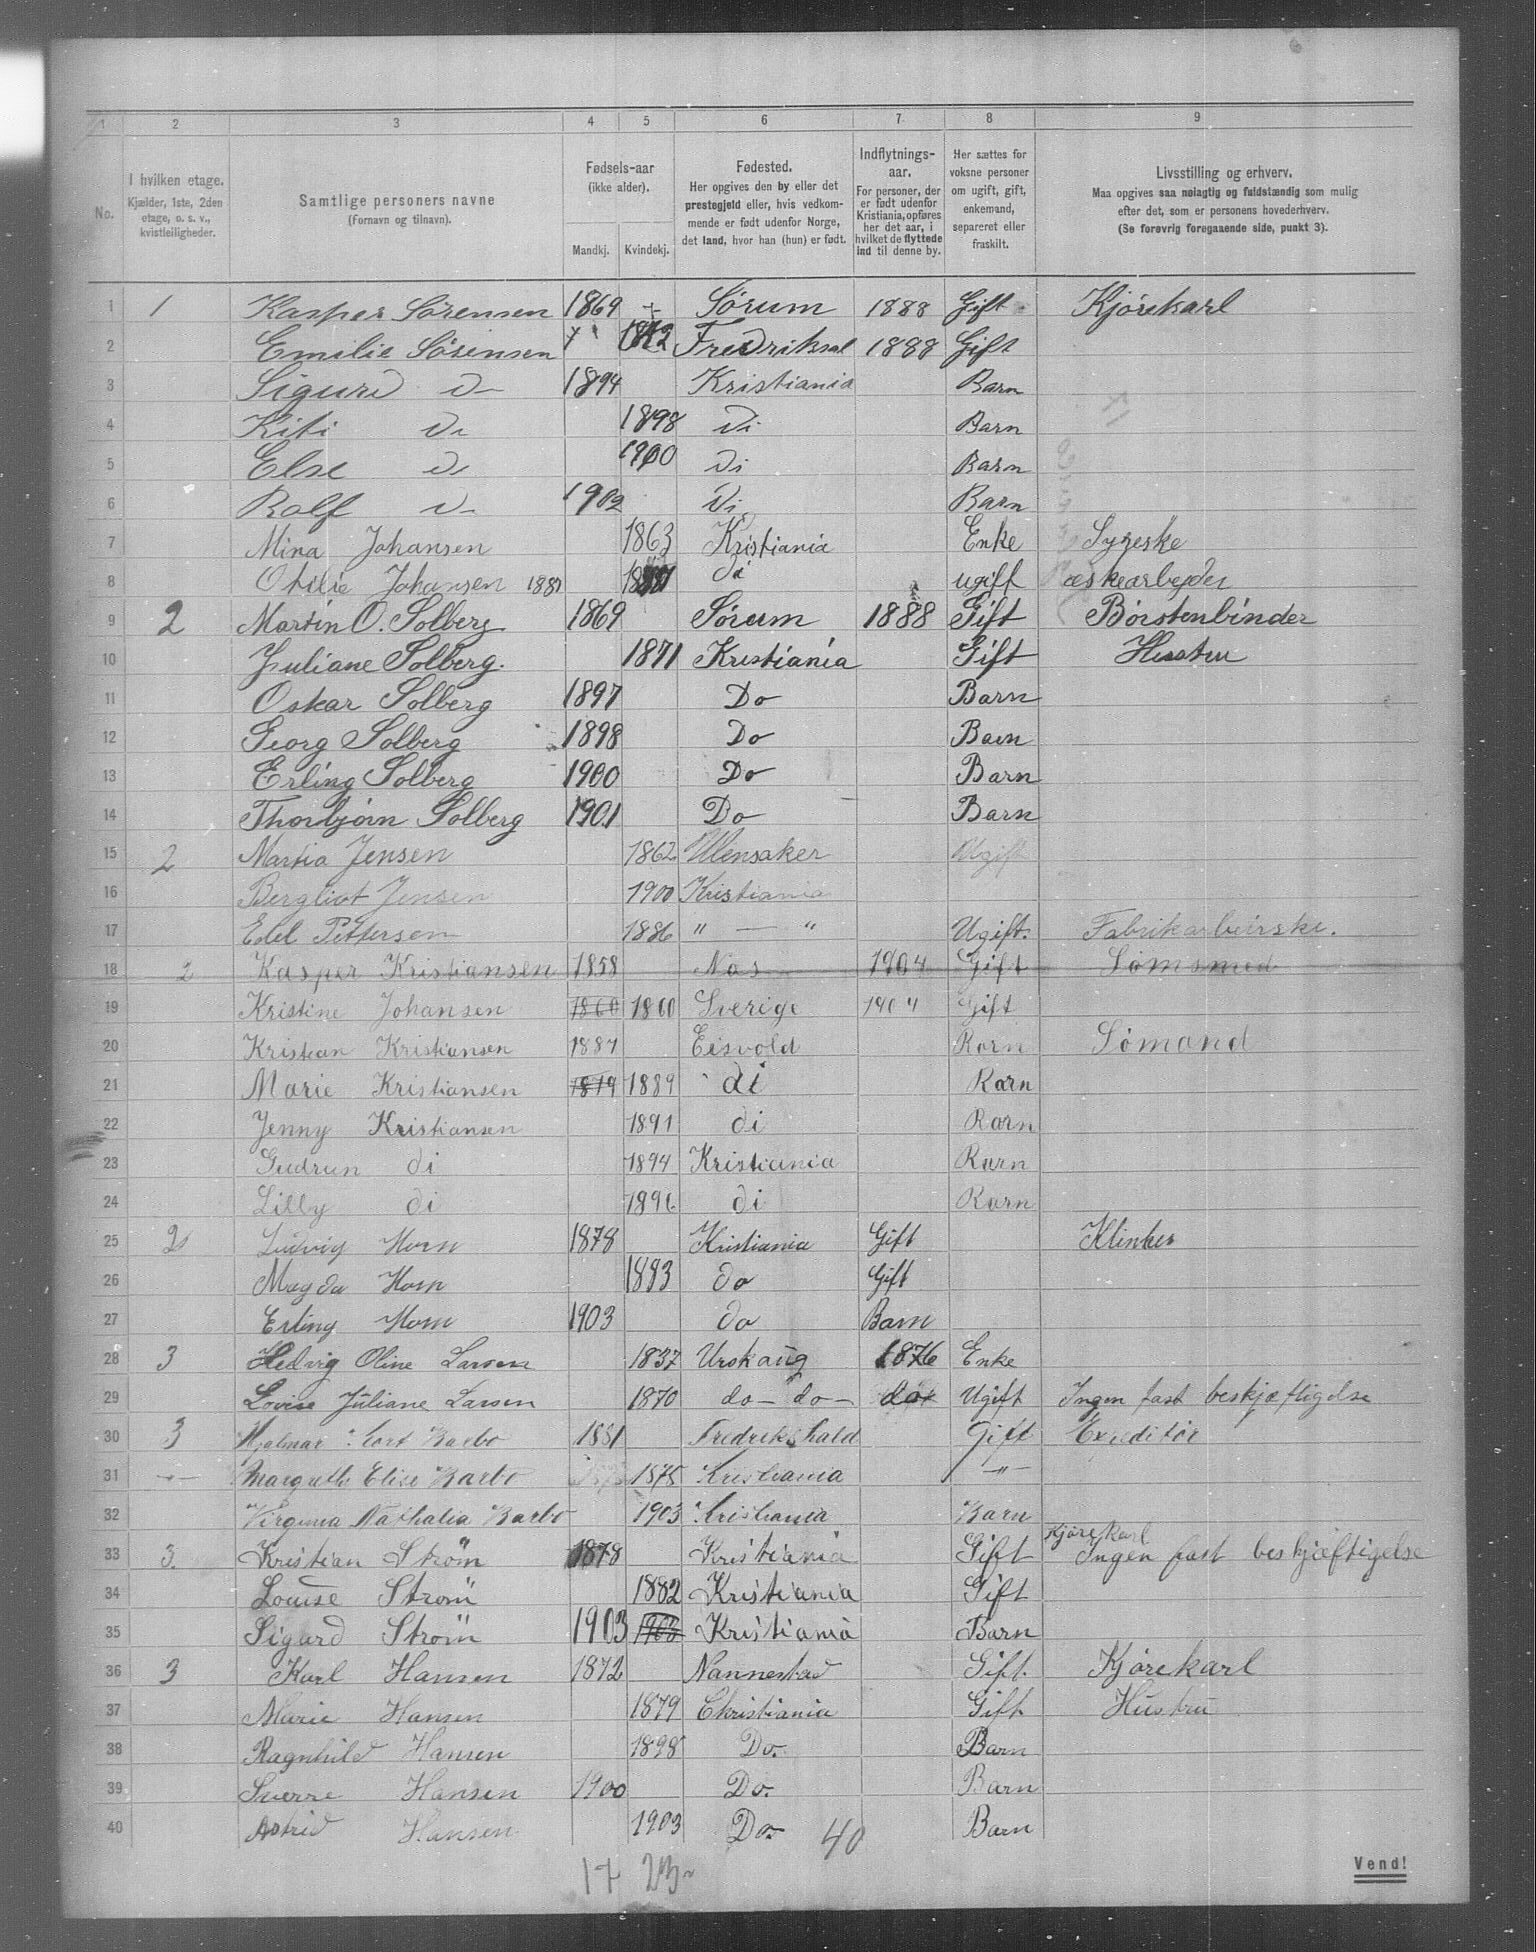 1 2 3 4 5 6 7 8 9
No.
I hvilken etage.
Kjælder, 1ste, 2den
etage, o. s. v.,
kvistleiligheder.
Samtlige personers navne
(fornavn og tilnavn).
Fødsels-aar
(ikke alder).
Mandkj. Kvindekj.
Fødested.
Her opgives den by eller det
prestegjeld eller, hvis vedkom-
mende er født udenfor Norge,
det land, hvor han (hun) er født.
Indflytnings-
aar.
For personer, der
er født udenfor
Kristiania, opføres
her det aar, i
hvilket de flyttede
ind til denne by.
Her sættes for
voksne personer
om ugift, gift,
enkemand,
separeret eller
fraskilt.
Livsstilling og erhverv.
Maa opgives saa nøiagtig og fuldstændig som mulig
efter det, som er personens hovederhverv.
(Se forøvrig foregaaende side, punkt 3).
1 1 Kasper Sørensen 1869 Sørum 1888 Gift Kjørekarl
2 Emilie Sørensen 1888 Gift
3 Sigurd 1894 Kristiania Barn
4 Kiti 1898 Di Barn
5 Else 1900 Di Barn
6 Rolf 1902 Di Barn
7 Mina Johansen 1863 Kristiania Enke Syerske
8 Otilie Johansen 1881 di ugift æskearbejder
9 2 Martin O. Solberg 1869 Sørum 1888 Gift Børstenbinder
10 Juliane Solberg. 1871 Kristiania Gift Hustru
11 Oskar Solberg 1897 Do Barn
12 Georg Solberg 1898 Do Barn
13 Erling Solberg 1900 Do Barn
14 Thorbjørn Solberg 1901 Do Barn
15 2 Martia Jensen 1862 Ullensaker Ugift
16 Bergliot Jensen 1900 Kristiania
17 Edel Pettersen 1886 " — " Ugift. Fabrikarbeirske.
18 2 Kasper Kristiansen 1858 Nas 1904 Gift
19 Kristine Johansen 1860 1860 Sverige 1904 Gift
20 Kristian Kristiansen 1887 Eisvold Barn Sømand
21 Marie Kristiansen 1879 1889 di Barn
22 Jenny Kristiansen 1891 di Barn
23 Gudrun di 1894 Kristiania Barn
24 Lilly di 1896 di Barn
25 2 Ludvig Horn 1878 Kristiania Gift Klinker
26 Magda Horn 1883 do Gift
27 Erling Horn 1903 do Barn
28 3 Hedvig Oline Larsen 1837 Urskaug 1876 Enke
29 Lovise Juliane Larsen 1870 do — do — do Ugift Ingen fast beskjæftigelse
30 3 Hjalmar Barbo 1881 Fredrikshald Gift Expeditør
31 Margrethe Elise Barbo 1875 Kristiania — " —
32 Virginia Nathalia Barbo 1903 Kristiania Barn
33 3. Kristian Strøm 1878 Kristiania Gift Kjørekarl Ingen fast beskjæftigelse
34 Louise Strøm 1882 Kristiania Gift
35 Sigard Strøm 1903 Kristiania Barn
36 3 Karl Hansen 1872 Nannestad Gift. Kjørekarl
37 Marie Hansen 1879 Christiania Gift. Hustru
38 Ragnhild Hansen 1898 Do. Barn
39 Sverre Hansen 1900 Do. Barn
40 Astrid Hansen 1903 Do. Barn
40
17 23
Vend!